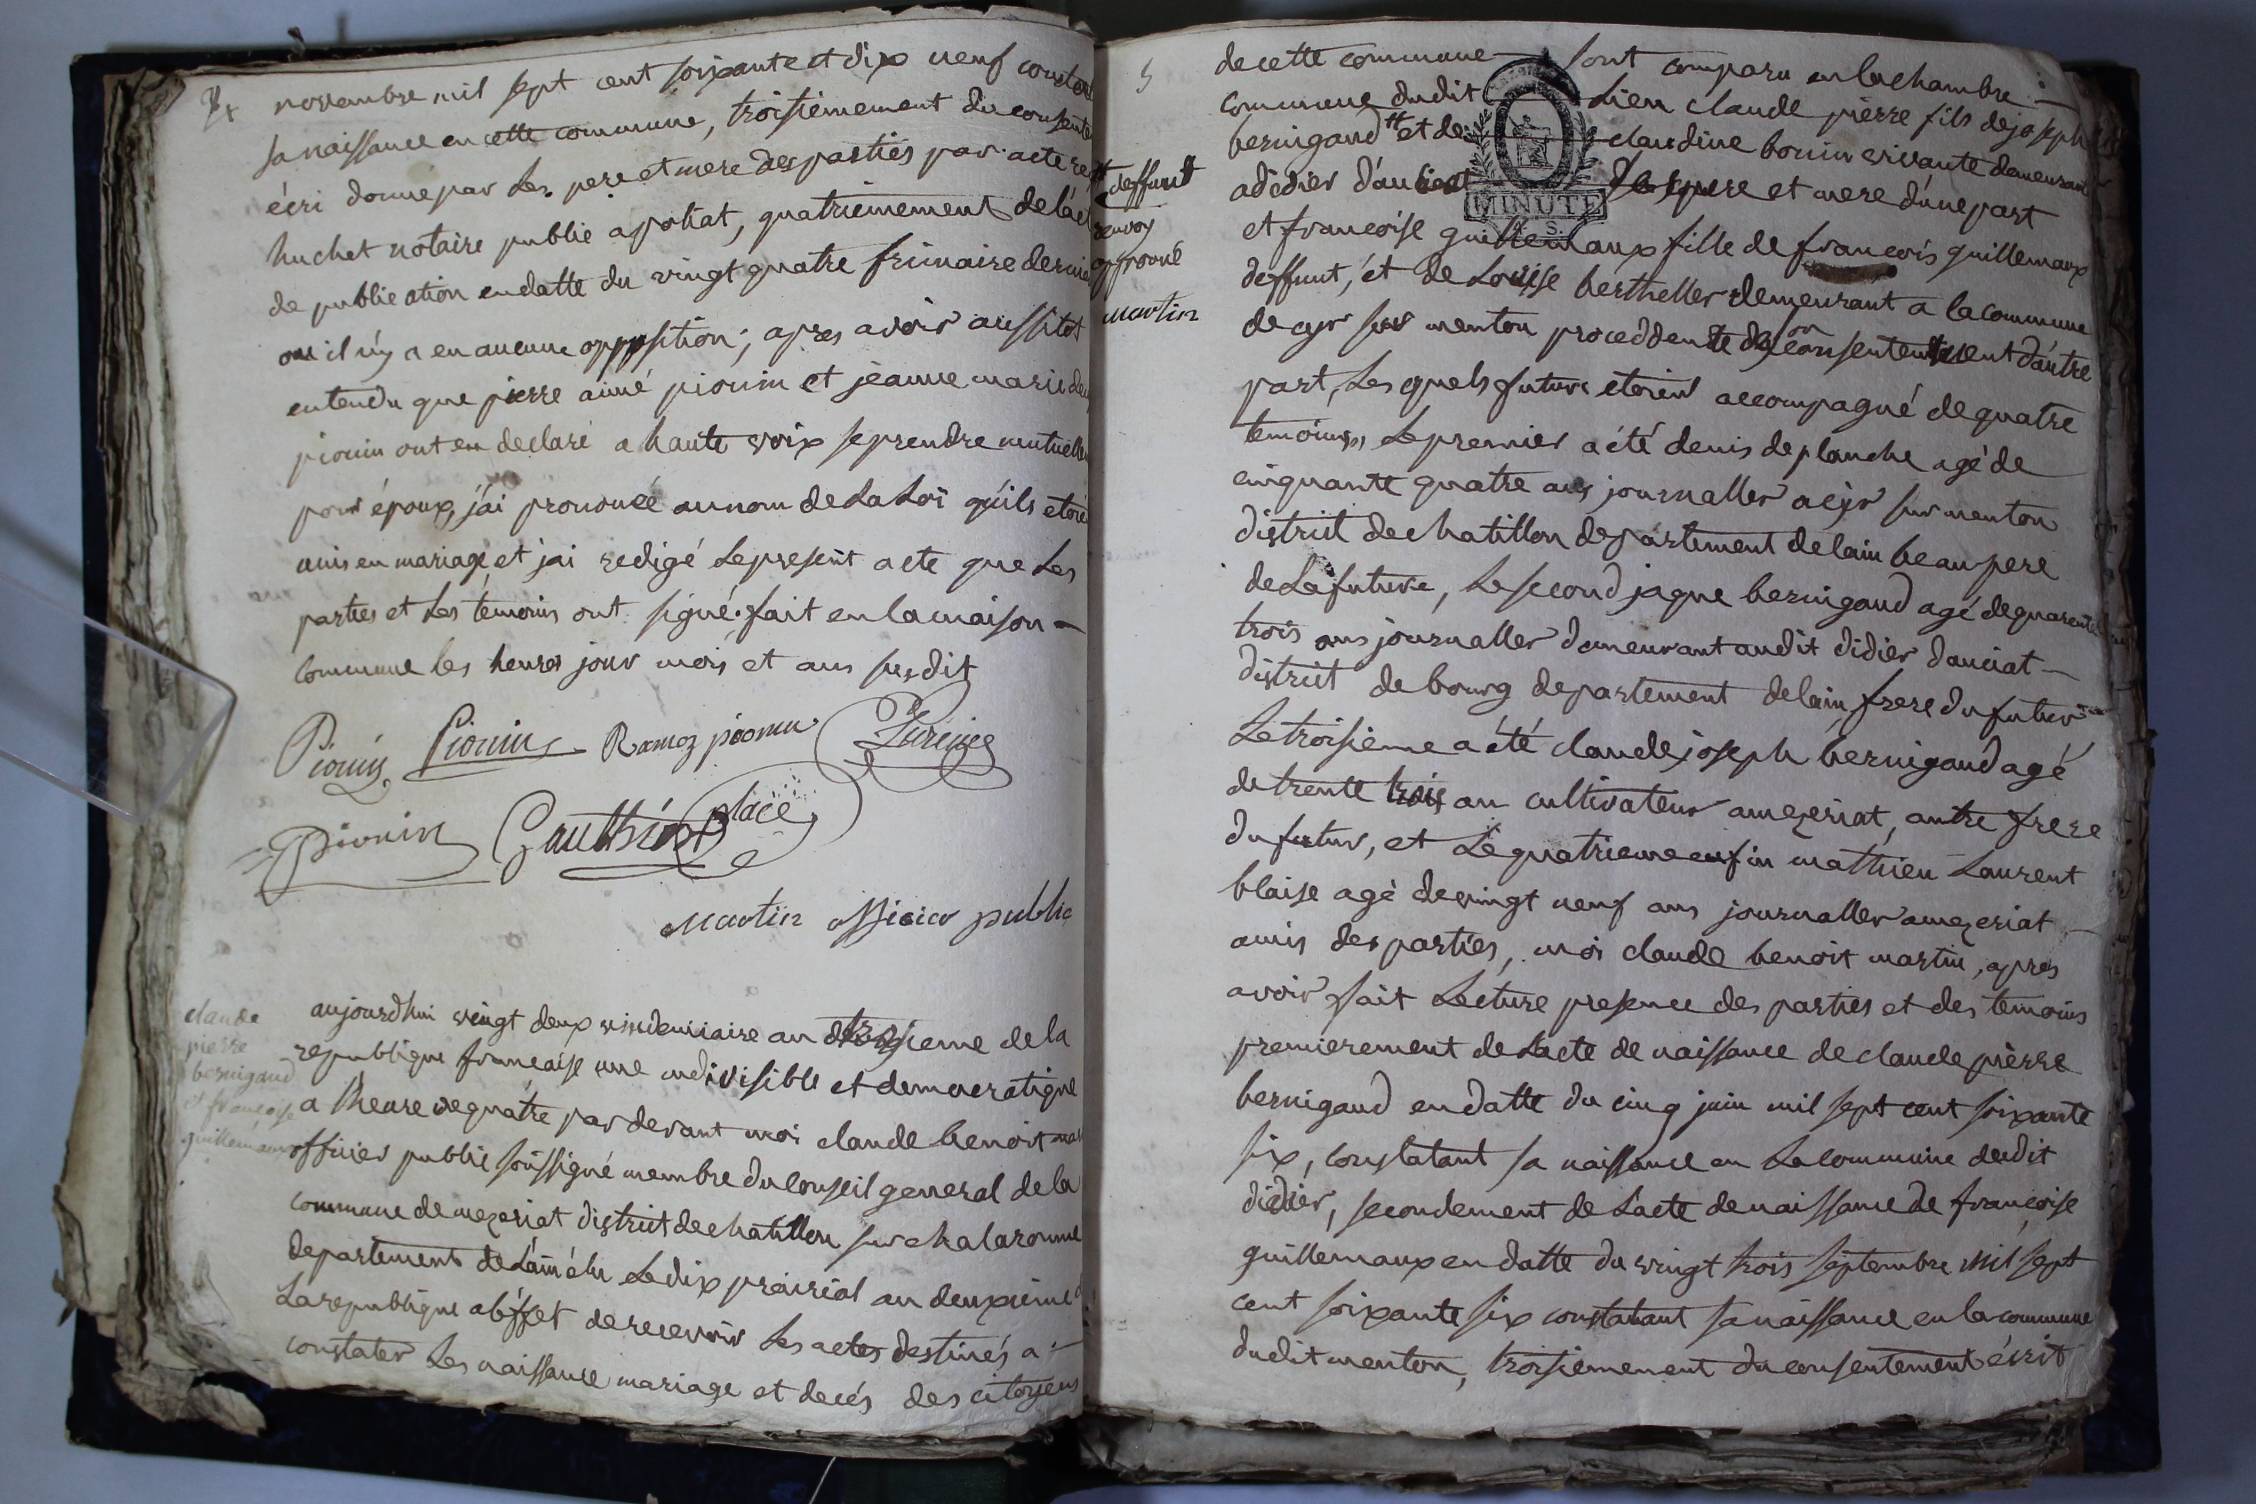 novembre mil sept cent soixante et dix neuf constat
sa naissance en cette commune, troisiemement du consente
écri donné par Les pere et mere des parties par acte re
huchet notaire public a potiat, quatriemement de l'ac
de publication en datte du vingt quatre frimaire dernie
ou il n'y a eu aucune opposition; apres avoir aussitot
entendu que pierre aimé pionin et jeanne marie
pionin ont eu declaré a haute voix se prendre mutuelle
pour époux, j'ai prononcé au nom de La Loi qu'ils etoie
unis en mariage et jai redigé Le present acte que Les
parties et Les temoins ont signé. fait en la maison
commune les heures jour mois et ans susdit
Pionin Pionin Ramoz pionin
Pionin Gauthier place
Martin officier public
claude
pierre
bernigaud
et françoise
guillemaux
aujourd'hui vingt deux vindemiaire an troisieme de la
republique francaise une indivisible et democratique
a l'heure de quatre par devant moi claude benoit mar
officier public soussigné membre du conseil general de la
commune de mezeriat district de chatillon sur chalaronne
departement de L'ain élu Le dix prairial an deuxieme
La republique a l'effet de recevoir Les actes destinés a
constater Les naissance mariage et decés des citoyens
5
deffunt
renvoy
approuvé
martin
de cette commune sont comparu en la chambre
commune dudit Lieu claude pierre fils de joseph
bernigaud et de claudine bonin vivante demeurant
a didier d'auciat pere et mere d'une part
MINUTE
et francoise guillemaux fille de francois guillemaux
deffunt, et de Louise berthellet demeurant a la commune
de cyr sur menton proceddente de son consentement d'autre
part, Les quels futurs etoient accompagné de quatre
temoins, Le premier a été denis deplanche agé de
cinquante quatre ans journallier a cyr sur menton
district de chatillon departement de lain beau pere
de La future, Le second jaque bernigaud agé de quarente
trois ans journallier demeurant audit didier dauciat
district de bourg departement de lain, frere du futur
Le troisieme a été claude joseph bernigaud agé
de trente trois an cultivateur a mezeriat, autre frere
du futur, et Le quatrieme enfin mathieu Laurent
blaise agé de vingt neuf ans journallier a mezeriat
amis des parties, moi claude benoit martin, apres
avoir fait Lecture presence des parties et des temoins
premierement de Lacte de naissance de claude pierre
bernigaud en datte du cinq juin mil sept cent soixante
six, constatant sa naissance en La commune dudit
didier, secondement de Lacte de naissance de françoise
guillemaux en datte du vingt trois septembre mil sept
cent soixante six constatant sa naissance en la commune
dudit menton, troisiemement du consentement écrit